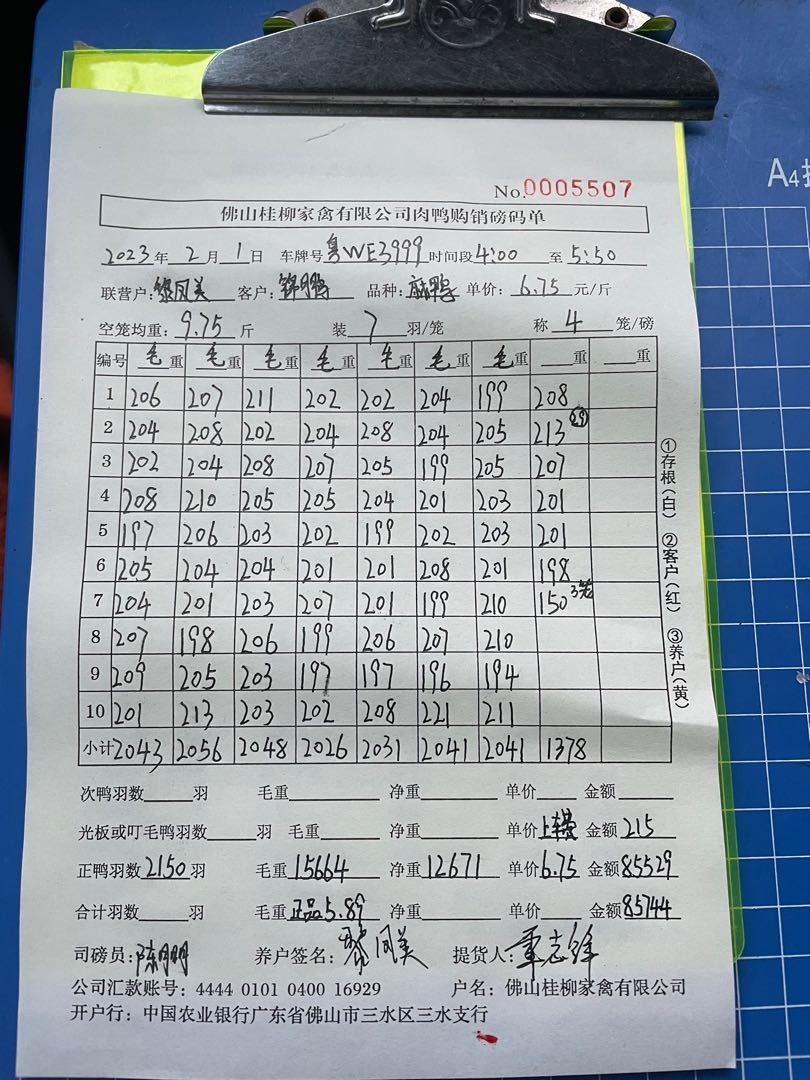 No.0005507
佛山桂柳家禽有限公司肉鸭购销磅码单
2023年 2月 1日 车牌号 粤WE3999 时间段 4:00 至 5:50
联营户: 黎凤美 客户: 锦鹏 品种: 麻鸭 单价: 6.75 元/斤
空笼均重: 9.75 斤 装 7 羽/笼 称 4 笼/磅
编号 毛重 毛重 毛重 毛重 毛重 毛重 毛重 重 重
1 206 207 211 202 202 204 199 208
2 204 208 202 204 208 204 205 213
3 202 204 208 207 205 199 205 207
4 208 210 205 205 204 201 203 201
5 197 206 203 202 199 202 203 201
6 205 204 204 201 201 208 201 198
7 204 201 203 207 201 199 210 150 3笼
8 207 198 206 199 206 207 210
9 209 205 203 197 197 196 194
10 201 213 203 202 208 221 211
小计 2043 2056 2048 2026 2031 2041 2041 1378
次鸭羽数 羽 毛重 净重 单价 金额
光板或叮毛鸭羽数 羽 毛重 净重 单价 上车费 金额 215
正鸭羽数 2150 羽 毛重 15664 净重 12671 单价 6.75 金额 85529
合计羽数 羽 毛重 正品5.89 净重 单价 金额 85744
司磅员: 陈明明 养户签名: 黎凤美 提货人: 覃志锋
公司汇款账号: 4444 0101 0400 16929 户名: 佛山桂柳家禽有限公司
开户行: 中国农业银行广东省佛山市三水区三水支行
①存根(白) ②客户(红) ③养户(黄)
A4